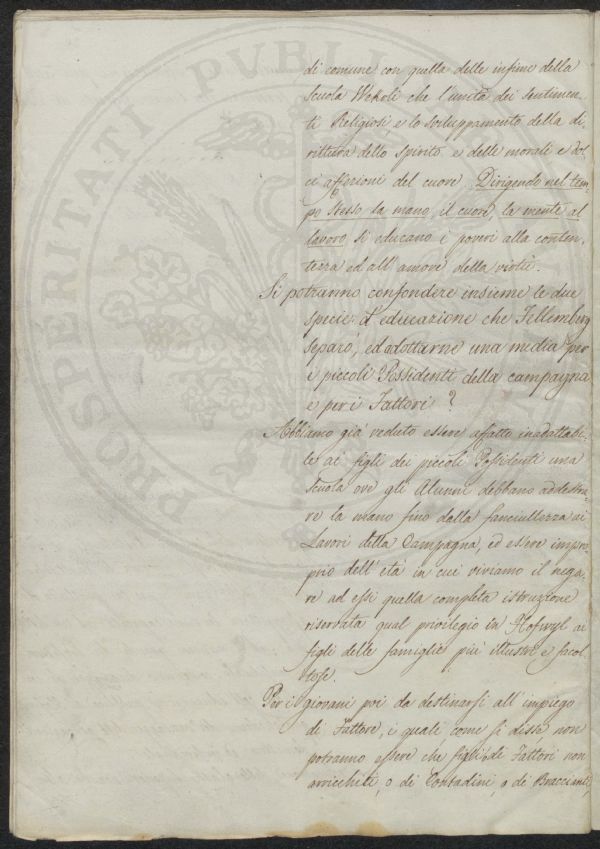 di comune con quella delle infime della
Scuola Wehrli che l'unità dei sentimen,
ti Religiosi, e lo sviluppamento della di,
rittura dello Spirito e delle morali e dol,
ci affezioni del cuore. Dirigendo nel tem,
po stesso la mano, il cuore, la mente al
lavoro si educano i poveri alla conten,
tezza ed all'amore della virtù.
Si potranno confondere insieme le due
specie d'educazione che Fellemberg
separò, ed adottarne una media per
i piccoli Possidenti della campagna
e per i Fattori?
Abbiamo già veduto essere affatto inadattabi,
le ai figli dei piccoli Possidenti una
Scuola ove gli Alunni debbano addestra,
re la mano fino dalla fanciullezza ai
Lavori della Campagna, ed essere impro,
prio dell'età in cui viviamo il nega,
re ad essi quella completa istruzione
riservata qual privilegio in Hofwyl ai
figli delle famiglie più illustri e facol,
tose.
Per i giovani poi da destinarsi all'impiego
di Fattore, i quali come si disse non
potranno essere che figli di Fattori non
arricchiti, o di Contadini, o di Braccianti,
PROSPERITATI PVBLI